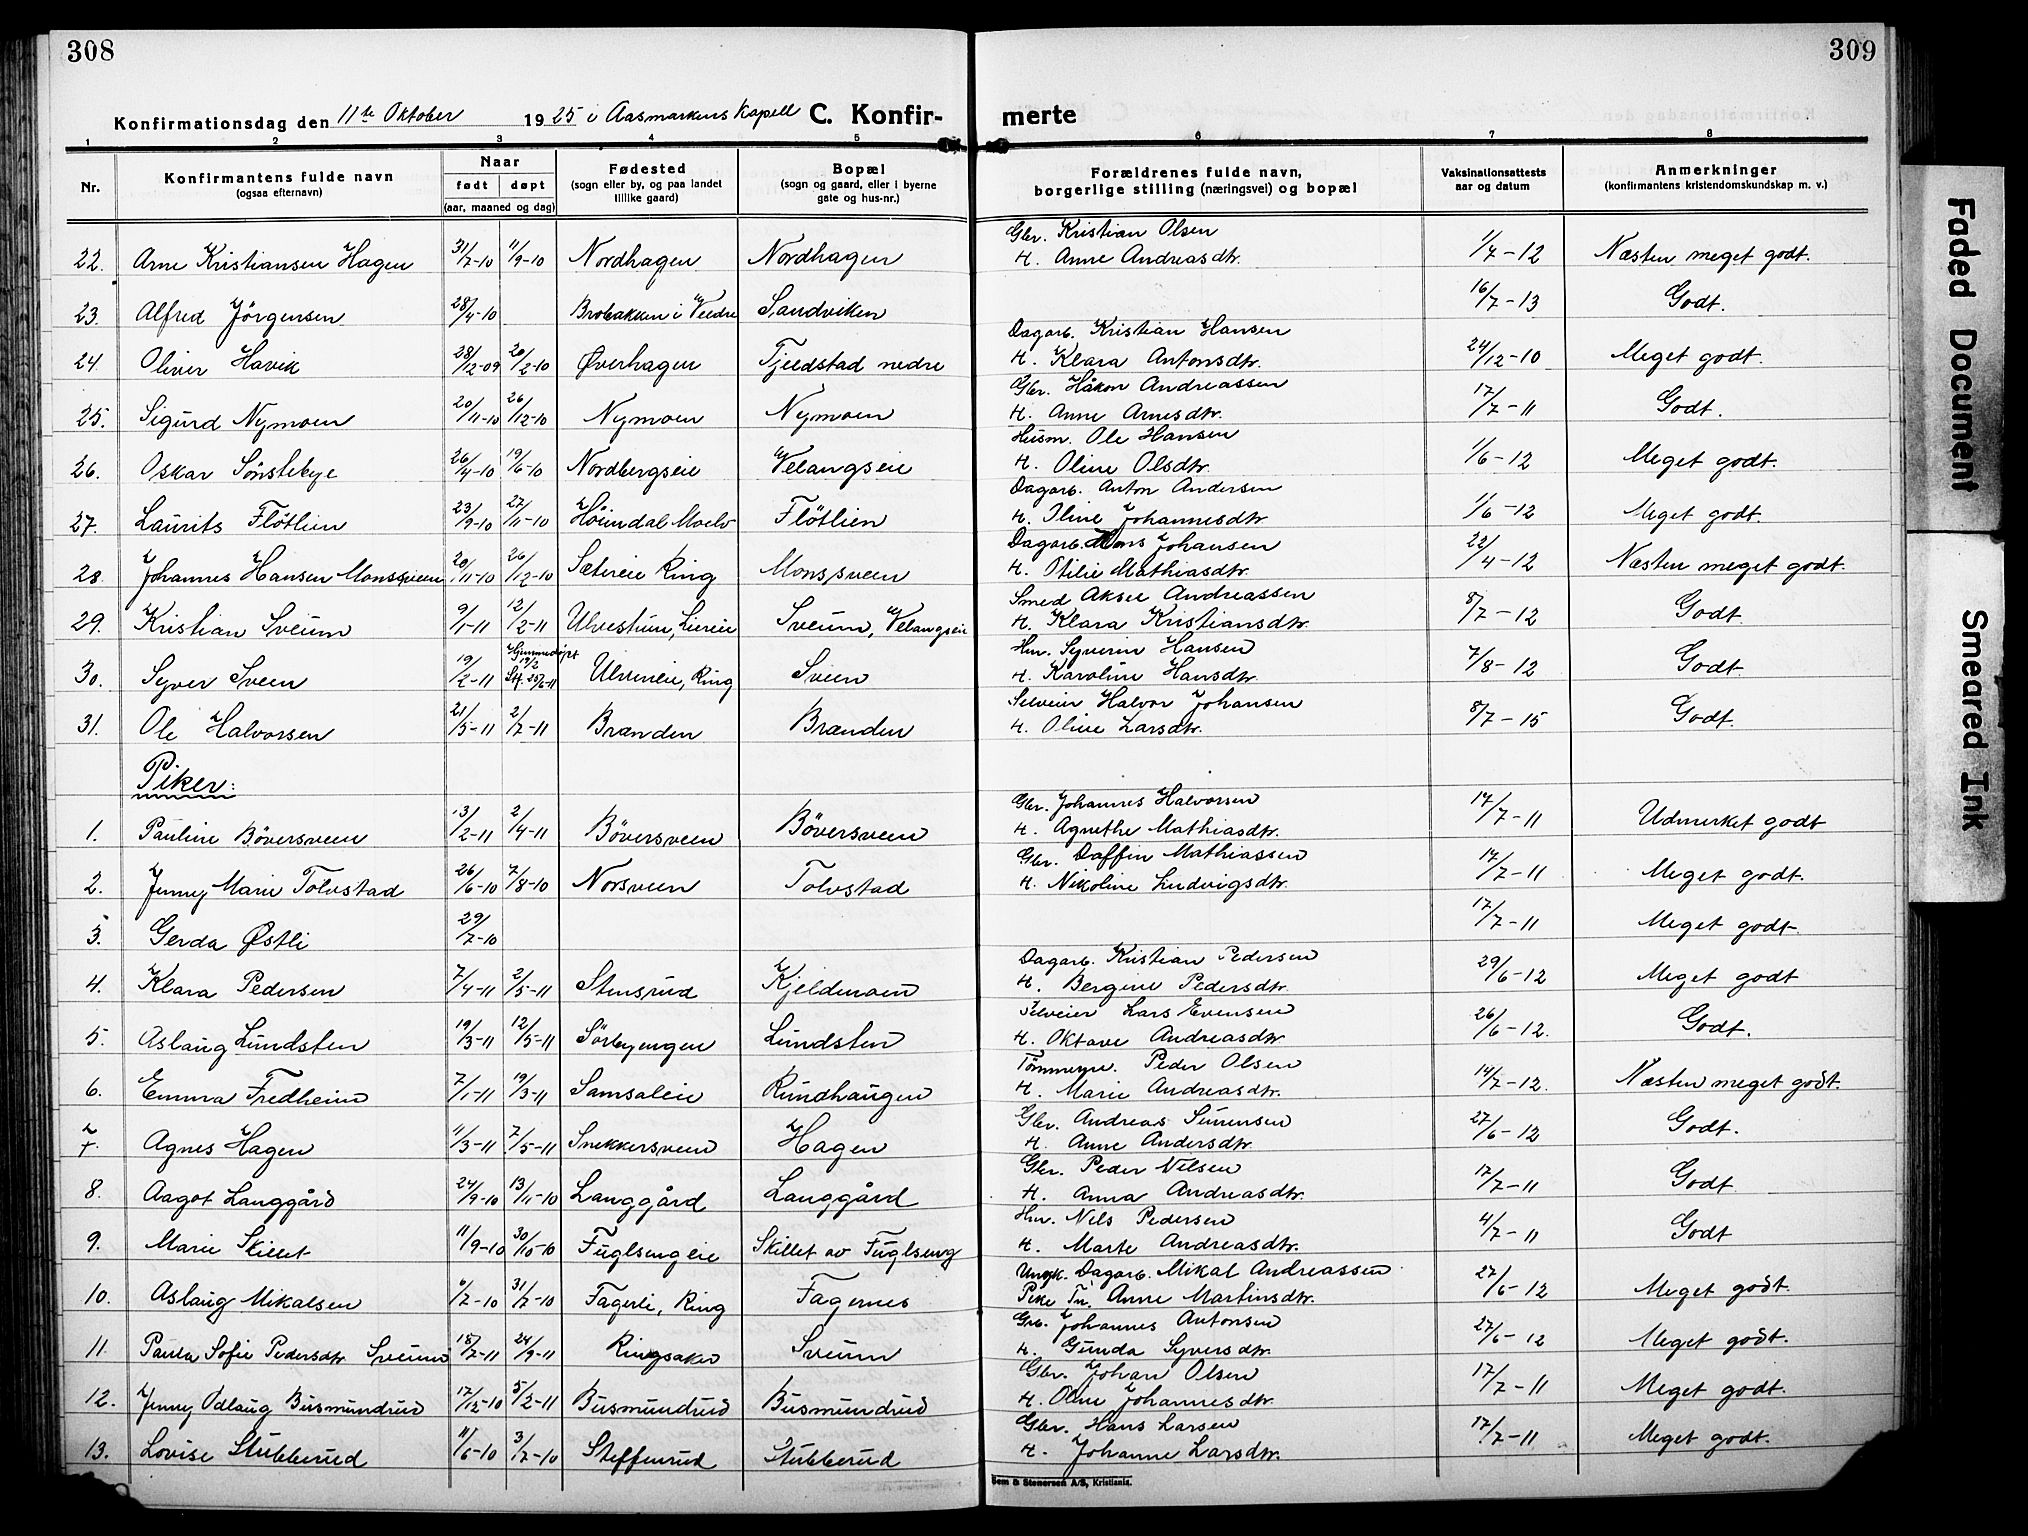 308
309
Konfirmationsdag den 11te Oktober 1925 i Aasmarkens Kapell C. Konfir-
merte
1 2 3 4 5 6 7 8
Nr. Konfirmantens fulde navn (ogsaa efternavn) Naar født døpt (aar, maaned og dag) Fødested (sogn eller by, og paa landet tillike gaard) Bopæl (sogn og gaard, eller i byerne gate og hus-nr.) Forældrenes fulde navn, borgerlige stilling (næringsvei) og bopæl Vaksinationsattests aar og datum Anmerkninger (konfirmantens kristendomskundskap m. v.)
22. Arne Kristiansen Hagen 31/7-10 11/9-10 Nordhagen Nordhagen Gbr. Kristian Olsen H. Anne Andreasdtr. 1/7-12 Næsten meget godt.
23. Alfred Jørgensen 28/4-10 Brobakken i Veldre Sandviken 16/7-13 Godt.
24. Oliver Havik 28/12-09 20/2-10 Øverhagen Tjeldstad nedre Dagarb. Kristian Hansen H. Klara Antonsdtr. 24/12-10 Meget godt.
25. Sigurd Nymoen 20/11-10 26/12-10 Nymoen Nymoen Gbr. Håkon Andreassen H. Anne Arnesdtr. 17/7-11 Godt.
26. Oskar Sønstebye 26/4-10 19/6-10 Nordbergseie Velangseie Husm. Ole Hansen H. Oline Olsdtr. 1/6-12 Meget godt.
27. Laurits Fløtlien 23/9-10 27/11-10 Høiendal Moelv Fløtlien Dagarb. Anton Andersen H. Oline Johannesdtr 1/6-12 Meget godt.
28. Johannes Hansen Monssveen 20/11-10 26/12-10 Sætereie Ring Monssveen Dagarb. Hans Johansen H. Otilie Mathiasdtr. 22/4-12 Næsten meget godt.
29. Kristian Sveum 9/1-11 12/2-11 Ulvestuen, Liereie Sveum, Velangseie Smed Aksel Andreassen H. Klara Kristiansdtr. 8/7-12 Godt
30. Syver Sveen 19/2-11 Hjemmedøpt 19/2 Stf. 25/6-11 Ulveneie, Ring Sveen Hm. Syverin Hansen H. Karoline Hansdtr. 7/8-12 Godt
31. Ole Halvorsen 21/5-11 2/7-11 Brænden Brænden Selveier Halvor Johansen H. Oline Larsdtr. 8/7-15 Godt.
Piker:
1. Pauline Bøversveen 13/2-11 2/4-11 Bøversveen Bøversveen Gbr. Johannes Halvorsen H. Agnethe Mathiasdtr. 17/7-11 Udmerket godt
2. Jenny Marie Tolvstad 26/6-10 7/8-10 Norsveen Tolvstad Gbr. Daffin Mathiassen H. Nikoline Ludvigsdtr. 17/7-11 Meget godt.
3. Gerda Østli 29/7-10 17/7-11 Meget godt.
4. Klara Pedersen 7/4-11 2/5-11 Stensrud Kjeldemoen Dagarb. Kristian Pedersen H. Bergine Pedersdtr. 29/6-12 Meget godt
5. Aslaug Lundsten 19/3-11 12/5-11 Sørbyengen Lundsten Selveier Lars Evensen H. Oktave Andreasdtr 26/6-12. Godt.
6. Emma Fredheim 7/1-11 19/3-11 Samsaleie Rundhaugen Tømmerm. Peder Olsen H. Marie Andreasdtr. 14/7-12. Næsten meget godt.
7. Agnes Hagen 11/3-11 7/5-11 Snekkersveen Hagen Gbr. Andreas Simensen H. Anne Andersdtr. 27/6-12 Godt.
8. Aagot Langgård 24/9-10 13/11-10 Langgård Langgård Gbr. Peder Nilsen H. Anna Andreasdtr. 17/7-11 Godt
9. Marie Skillet 11/9-10 30/10-10 Fuglsengeie Skillet av Fuglseng Hm. Nils Pedersen H. Marte Andreasdtr. 4/7-11 Godt
10. Aslaug Mikalsen 6/7-10 31/7-10 Fagerli, Ring Fagernes Ungk. Dagarb. Mikal Andreassen Pike Tn. Anne Martinsdtr. 27/6-12 Meget godt.
11. Paula Sofie Pedersdtr Sveum 18/7-11 24/9-11 Ringsaker Sveum Grb. Johannes Antonsen H. Gunda Syversdtr. 27/6-12 Meget godt.
12. Jenny Odlaug Busmundrud 17/12-10 5/2-11 Busmundrud Busmundrud Gbr. Johan Olsen H. Oline Johannesdtr. 17/7-11 Meget godt.
13. Lovise Stubberud 11/6-10 3/7-10 Steffenrud Stubberud Gbr. Hans Larsen H. Johanne Larsdtr. 17/7-11 Meget godt.
Sem & Stenersen A/S, Kristiania.
Faded Document
Smeared Ink